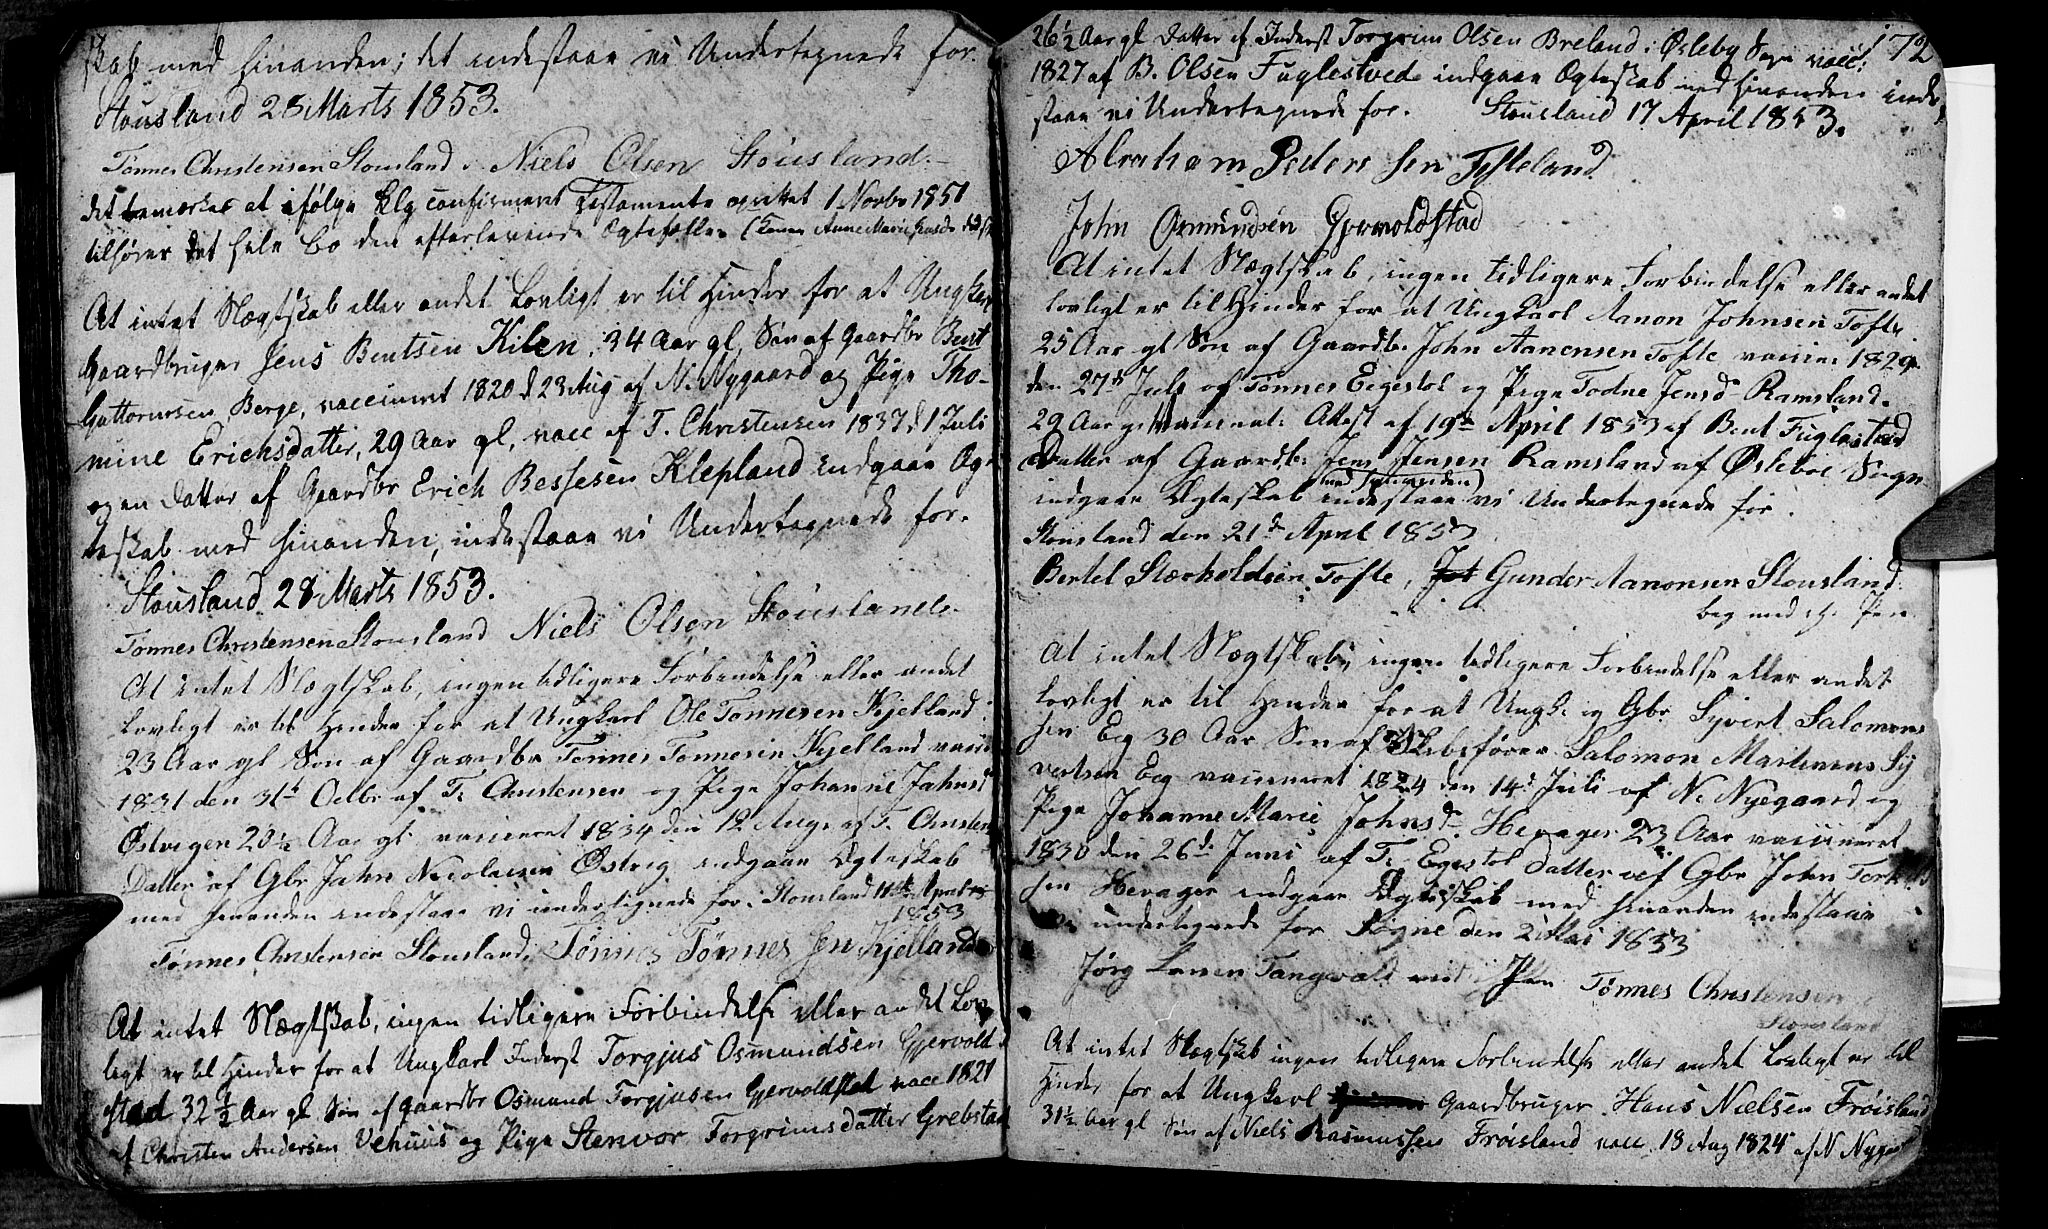 skab med hinanden; det indestaae vi Undertegnede for.
Stousland 28 Marts 1853.
Tønnes Christensen Stousland. Niels Olsen Stousland.
det bemærkes at ifølge Klg confirmeret Testamente oprettet 1 Novbr 1851
tilhører det hele bo den efterlevende Ægtefælle (Konen Anne Marie
At intet Slægtskab eller andet Lovligt er til Hinder for at Ungkarl
Gaardbruger Jens Bentsen Kilen, 34 Aar gl Søn af Gaardbr Bent
Guttormsen Berge, vaccineret 1820 d 23 Aug af N. Nygaard og Pige Tho-
mine Erichsdatter, 29 Aar gl, vacc af T. Christensen 1837 d 1 Juli
og en Datter af Gaardbr Erich Bessesen Klepland indgaae Æg-
teskab med hinanden, indestaae vi Undertegnede for.
Stousland 28 Marts 1853.
Tønnes Christensen Stousland Niels Olsen Stousland.
At intet Slægtskab, ingen tidligere Forbindelse eller andet
Lovligt er til Hinder for at Ungkarl Ole Tønnesen Kjelland
23 Aar gl Søn af Gaardbr Tønnes Tønnesen Kjelland vacci
1831 den 31te Octbr af T. Christensen og Pige Johanne Jahnsd
Østvigen 20½ Aar gl. vacineret 1834 den 12 Aug. af T. Christens
Datter af Gbr Jahn Nicolaisen Østvig indgaae Ægteskab
med hinanden indestaae vi undertignede for. Stousland 11te April
1853
Tønnes Christensen Stousland. Tønnes Tønnes sen Kjelland
At intet Slægtskab, ingen tidligere Forbindelse eller andet Lov
ligt er til Hinder for at Ungkarl Inderst Torgjus Osmundsen Gjervold
stad 32½ Aar gl Søn af Gaardbr Osmund Torgjusen Gjervoldstad vacc 1821
af Christen Andersen Vehuus og Pige Stenvor Torgrimsdatter Grebstad
172
26½ Aar gl Datter af Inderst Torgrim Olsen Breland i Øsleby Sogn vacc:
1827 af B. Olsen Fuglestved indgaae Ægteskab med hinanden inde
staae vi Undertegnede for. Stousland 17 April 1853.
Abraham Peders sen Tofteland
John Osmundsen Gjervoldstad
At intet Slægtskab, ingen tidligere Forbindelse eller andet
lovligt er til Hinder for at Ungkarl Aanon Johnsen Tofte
25 Aar gl Søn af Gaardbr John Aanensen Tofte vaccine: 1829
den 27de Juli af Tønnes Egestol og Pige Todne Jensd Ramsland.
29 Aar gl Attest af 19de April 1853 af Bent Fuglestved
Datter af Gaardbr Jens Jensen Ramsland af Øslebøe Sogn
indgaae Ægteskab (med hinanden) indestaae vi Undertegnede for.
Stousland den 21de April 1853
Bertel Stærholdsen Tofte, Gunder Aanonsen Stousland.
beg med ih. Pen
At intet Slægtskab, ingen tidligere Forbindelse eller andet
lovligt er til Hinder for at Ungk. og Gbr. Syvert Salomons
sen Eeg 30 Aar Søn af Skibsfører Salomon Martinius Sy
vertsen Eeg vaccineret 1824 den 14de Juli af N. Nyegaard og
Pige Johanne Marie Johnsd. Hevager 23 Aar vaccineret
1830 den 26de Juni af T. Egestol Datter af Gbr John Terkils
sen Hevager indgaae Ægteskab med hinanden indestaae
undertegnede for Søgne den 2 Mai 1853
Jørg Larsen Tangvald med Pen Tønnes Christensen
Stousland
At intet Slægtskab ingen tidligere Forbindelse eller andet Lovligt er til
Hinder for at Ungkarl Gaardbruger Hans Nielsen Frøisland
31½ Aar gl Søn af Niels Rasmussen Frøisland vacc 18 Aug 1824 af N Nygaa